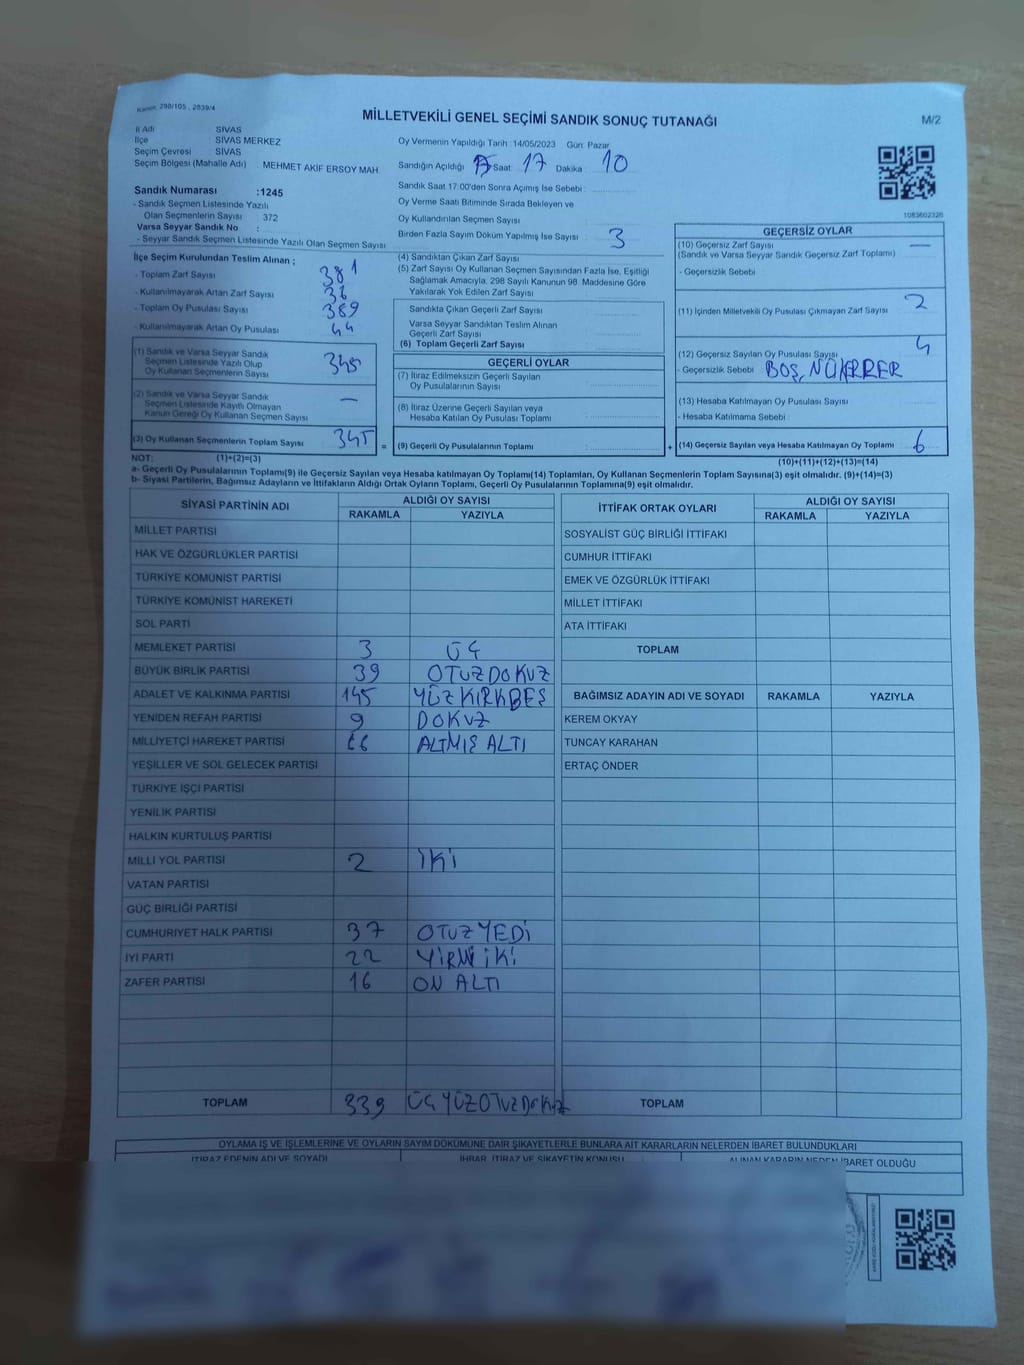 Kanun: 298/105 , 2839/4
MİLLETVEKİLİ GENEL SEÇİMİ SANDIK SONUÇ TUTANAĞI
M/2
İl Adı SİVAS
İlçe SİVAS MERKEZ
Seçim Çevresi SİVAS
Seçim Bölgesi (Mahalle Adı) MEHMET AKİF ERSOY MAH.
Oy Vermenin Yapıldığı Tarih :14/05/2023 Gün: Pazar
Sandığın Açıldığı Saat 17 Dakika 10
Sandık Saat 17:00'den Sonra Açımış İse Sebebi :
Sandık Numarası :1245
- Sandık Seçmen Listesinde Yazılı
Olan Seçmenlerin Sayısı : 372
Varsa Seyyar Sandık No :
- Seyyar Sandık Seçmen Listesinde Yazılı Olan Seçmen Sayısı
Oy Verme Saati Bitiminde Sırada Bekleyen ve
Oy Kullandırılan Seçmen Sayısı
Birden Fazla Sayım Döküm Yapılmış İse Sayısı 3
1083602326
İlçe Seçim Kurulundan Teslim Alınan ;
- Toplam Zarf Sayısı 381
- Kullanılmayarak Artan Zarf Sayısı 36
- Toplam Oy Pusulası Sayısı 389
- Kullanılmayarak Artan Oy Pusulası 44
(1) Sandık ve Varsa Seyyar Sandık
Seçmen Listesinde Yazılı Olup
Oy Kullanan Seçmenlerin Sayısı 345
(2) Sandık ve Varsa Seyyar Sandık
Seçmen Listesinde Kayıtlı Olmayan
Kanun Gereği Oy Kullanan Seçmen Sayısı —
(3) Oy Kullanan Seçmenlerin Toplam Sayısı 345
(4) Sandıktan Çıkan Zarf Sayısı
(5) Zarf Sayısı Oy Kullanan Seçmen Sayısından Fazla İse, Eşitliği
Sağlamak Amacıyla, 298 Sayılı Kanunun 98. Maddesine Göre
Yakılarak Yok Edilen Zarf Sayısı
Sandıkta Çıkan Geçerli Zarf Sayısı
Varsa Seyyar Sandıktan Teslim Alınan
Geçerli Zarf Sayısı
(6) Toplam Geçerli Zarf Sayısı
GEÇERLİ OYLAR
(7) İtiraz Edilmeksizin Geçerli Sayılan
Oy Pusulalarının Sayısı
(8) İtiraz Üzerine Geçerli Sayılan veya
Hesaba Katılan Oy Pusulası Toplamı
= (9) Geçerli Oy Pusulalarının Toplamı +
GEÇERSİZ OYLAR
(10) Geçersiz Zarf Sayısı —
(Sandık ve Varsa Seyyar Sandık Geçersiz Zarf Toplamı)
- Geçersizlik Sebebi :
(11) İçinden Milletvekili Oy Pusulası Çıkmayan Zarf Sayısı 2
(12) Geçersiz Sayılan Oy Pusulası Sayısı 4
- Geçersizlik Sebebi : BOŞ,
(13) Hesaba Katılmayan Oy Pusulası Sayısı
- Hesaba Katılmama Sebebi :
(14) Geçersiz Sayılan veya Hesaba Katılmayan Oy Toplamı 6
NOT: (1)+(2)=(3) (10)+(11)+(12)+(13)=(14)
a- Geçerli Oy Pusulalarının Toplamı(9) ile Geçersiz Sayılan veya Hesaba katılmayan Oy Toplamı(14) Toplamları, Oy Kullanan Seçmenlerin Toplam Sayısına(3) eşit olmalıdır. (9)+(14)=(3)
b- Siyasi Partilerin, Bağımsız Adayların ve İttifakların Aldığı Ortak Oyların Toplamı, Geçerli Oy Pusulalarının Toplamına(9) eşit olmalıdır.
SİYASİ PARTİNİN ADI ALDIĞI OY SAYISI
RAKAMLA YAZIYLA
MİLLET PARTİSİ
HAK VE ÖZGÜRLÜKLER PARTİSİ
TÜRKİYE KOMÜNİST PARTİSİ
TÜRKİYE KOMÜNİST HAREKETİ
SOL PARTİ
MEMLEKET PARTİSİ 3 ÜÇ
BÜYÜK BİRLİK PARTİSİ 39 OTUZDOKUZ
ADALET VE KALKINMA PARTİSİ 145 YÜZKIRKBEŞ
YENİDEN REFAH PARTİSİ 9 DOKUZ
MİLLİYETÇİ HAREKET PARTİSİ 66 ALTMIŞ ALTI
YEŞİLLER VE SOL GELECEK PARTİSİ
TÜRKİYE İŞÇİ PARTİSİ
YENİLİK PARTİSİ
HALKIN KURTULUŞ PARTİSİ
MİLLİ YOL PARTİSİ 2 İKİ
VATAN PARTİSİ
GÜÇ BİRLİĞİ PARTİSİ
CUMHURİYET HALK PARTİSİ 37 OTUZYEDİ
İYİ PARTİ 22 YİRMİ İKİ
ZAFER PARTİSİ 16 ON ALTI
TOPLAM 339 ÜÇYÜZOTUZDOKUZ
İTTİFAK ORTAK OYLARI ALDIĞI OY SAYISI
RAKAMLA YAZIYLA
SOSYALİST GÜÇ BİRLİĞİ İTTİFAKI
CUMHUR İTTİFAKI
EMEK VE ÖZGÜRLÜK İTTİFAKI
MİLLET İTTİFAKI
ATA İTTİFAKI
TOPLAM
BAĞIMSIZ ADAYIN ADI VE SOYADI RAKAMLA YAZIYLA
KEREM OKYAY
TUNCAY KARAHAN
ERTAÇ ÖNDER
TOPLAM
OYLAMA İŞ VE İŞLEMLERİNE VE OYLARIN SAYIM DÖKÜMÜNE DAİR ŞİKAYETLERLE BUNLARA AİT KARARLARIN NELERDEN İBARET BULUNDUKLARI
İTİRAZ EDENİN ADI VE SOYADI İHBAR, İTİRAZ VE ŞİKAYETİN KONUSU ALINAN KARARIN NEDEN İBARET OLDUĞU